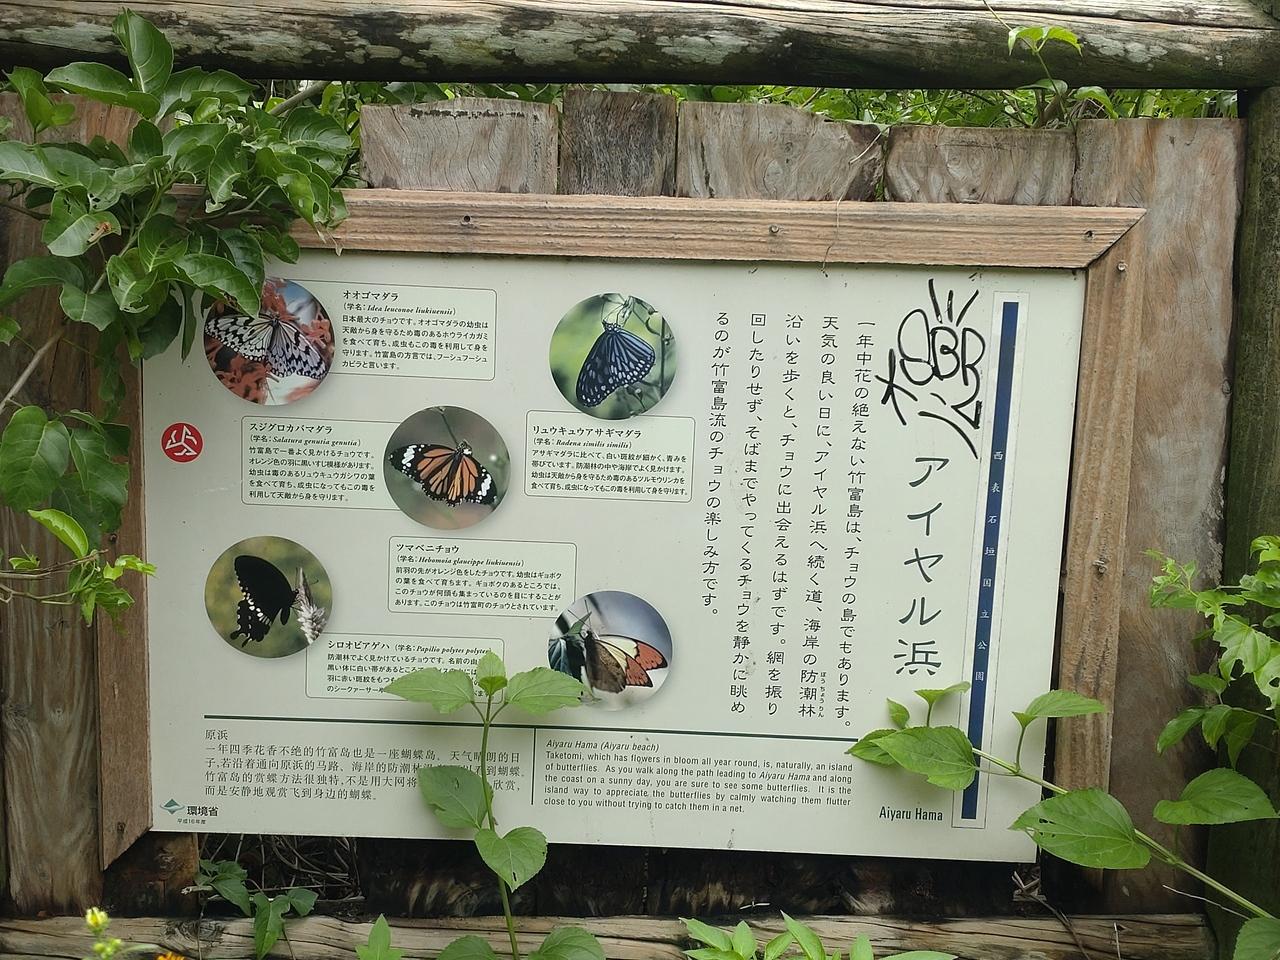 アイヤル浜
西表石垣国立公園
一年中花の絶えない竹富島は、チョウの島でもあります。
天気の良い日に、アイヤル浜へ続く道、海岸の防潮林
ぼうちょうりん
沿いを歩くと、チョウに出会えるはずです。網を振り
回したりせず、そばまでやってくるチョウを静かに眺め
るのが竹富島流のチョウの楽しみ方です。
オオゴマダラ
(学名: Idea leuconoe liukiuensis)
日本最大のチョウです。オオゴマダラの幼虫は
天敵から身を守るため毒のあるホウライカガミ
を食べて育ち、成虫もこの毒を利用して身を
守ります。竹富島の方言では、フーシュフーシュ
カビラと言います。
リュウキュウアサギマダラ
(学名: Radena similis similis)
アサギマダラに比べて、白い斑紋が細かく、青みを
帯びています。防潮林の中や海岸でよく見かけます。
幼虫は天敵から身を守るため毒のあるツルモウリンカを
食べて育ち、成虫になってもこの毒を利用して身を守ります。
スジグロカバマダラ
(学名: Salatura genutia genutia)
竹富島で一番よく見かけるチョウです。
オレンジ色の羽に黒いすじ模様があります。
幼虫は毒のあるリュウキュウガシワの葉
を食べて育ち、成虫になってもこの毒を
利用して天敵から身を守ります。
ツマベニチョウ
(学名: Hebomoia glaucippe liukiuensis)
前羽の先がオレンジ色をしたチョウです。幼虫はギョボク
の葉を食べて育ちます。ギョボクのあるところでは、
このチョウが何頭も集まっているのを目にすることが
あります。このチョウは竹富町のチョウとされています。
シロオビアゲハ (学名: Papilio polytes polytes)
防潮林でよく見かけているチョウです。名前の由
黒い体に白い帯があるところ
羽に赤い斑紋をもつ
のシークァーサーや
原浜
一年四季花香不绝的竹富岛也是一座蝴蝶岛。天气晴朗的日
子,若沿着通向原浜的马路、海岸的防潮林 看到蝴蝶。
竹富岛的赏蝶方法很独特,不是用大网将 欣赏,
而是安静地观赏飞到身边的蝴蝶。
Aiyaru Hama (Aiyaru beach)
Taketomi, which has flowers in bloom all year round, is, naturally, an island
of butterflies. As you walk along the path leading to Aiyaru Hama and along
the coast on a sunny day, you are sure to see some butterflies. It is the
island way to appreciate the butterflies by calmly watching them flutter
close to you without trying to catch them in a net.
Aiyaru Hama
環境省
平成16年度